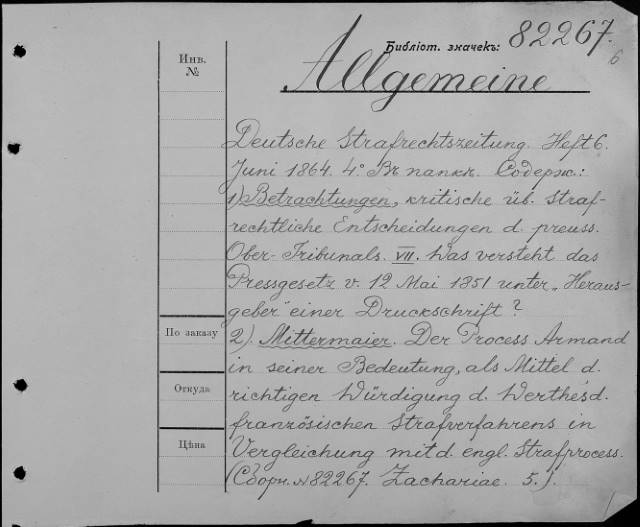 Библiот. значекъ: 82267.
6
Инв.
№
Allgemeine
Deutsche Strafrechtszeitung. Heft 6.
Juni 1864. 4° Въ папкѣ. Содерж.:
1) Betrachtungen, kritische üb. straf-
rechtliche Entscheidungen d. preuss.
Ober-Tribunals. VII. Was versteht das
Pressgesetz v. 12 Mai 1851 unter „Heraus-
geber" einer Druckschrift?
По заказу
2) Mittermaier. Der Process Armand
in seiner Bedeutung, als Mittel d.
Откуда
richtigen Würdigung d. Werthes d.
französischen Strafverfahrens in
Цѣна
Vergleichung mit d. engl. Strafprocess.
(Сборн. № 82267. Zachariae. 5.).